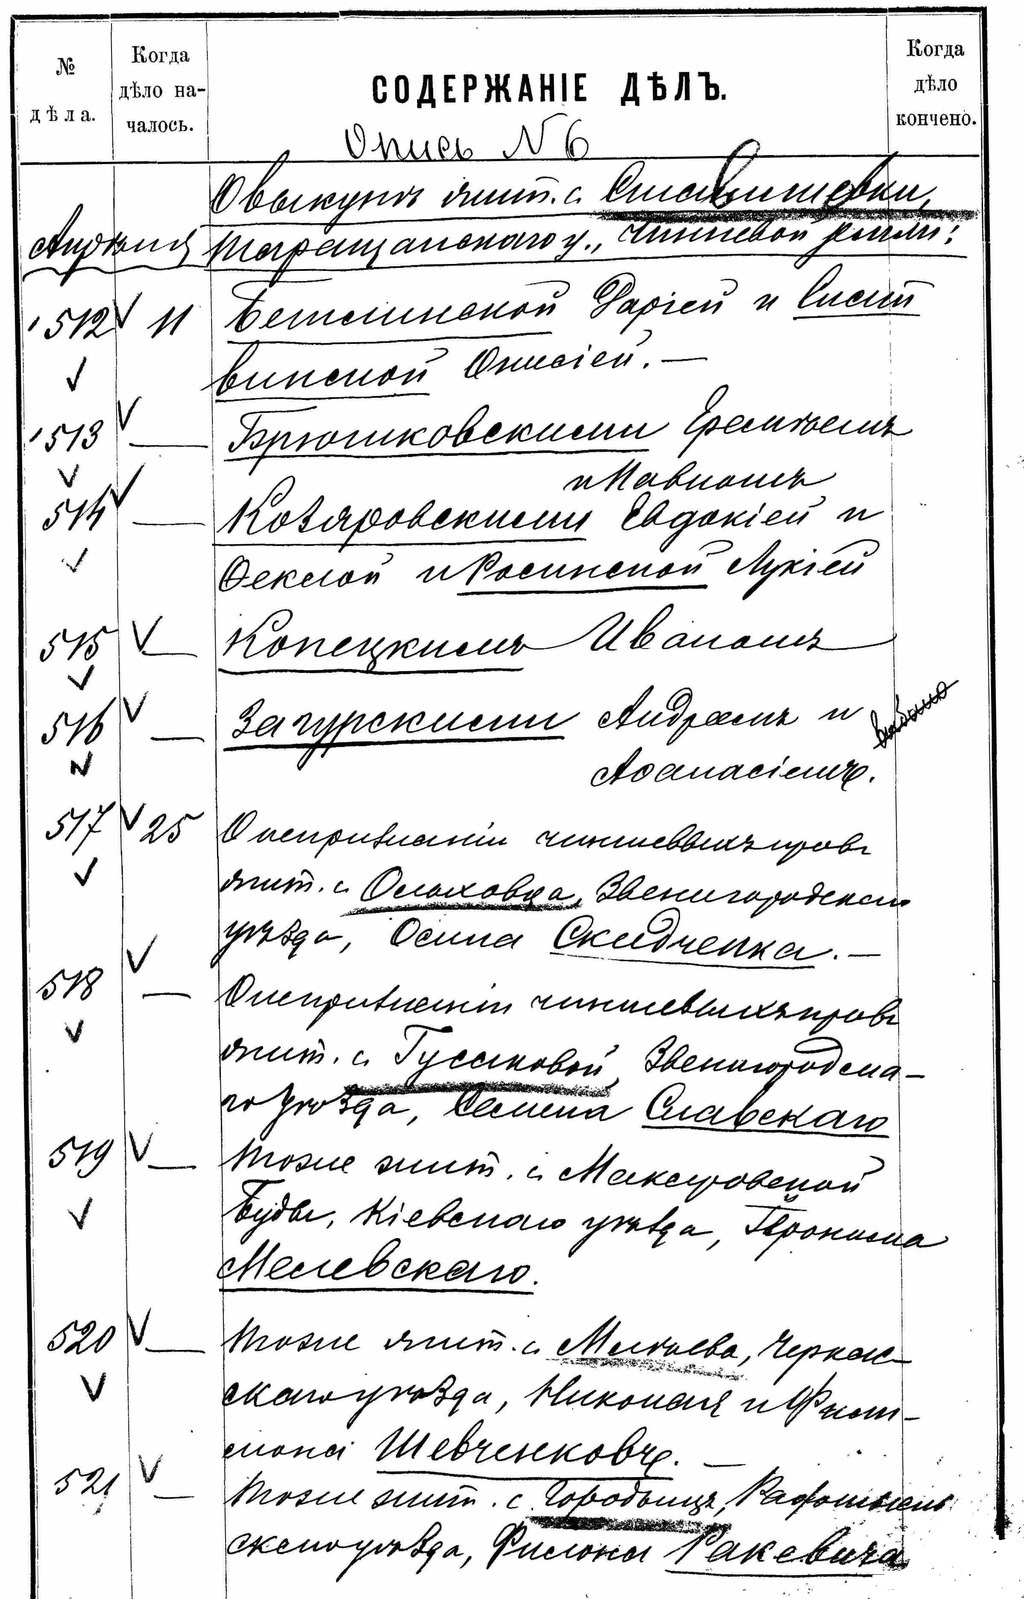 № дѣла.
Когда дѣло началось.
СОДЕРЖАНІЕ ДѢЛЪ.
Когда дѣло кончено.
Опись N 6
О выкупѣ жит. с.
Таращанскаго у., чиншевой земли:
512 11 Дарьей и
Онисіей. —
513 — Брюшковскими Еремѣемъ
и Павломъ
514 — Козяровскими Евдокіей и
Феклой и Росинской Лукіей
515 — Копецкимъ Иваномъ
516 — Загурскими Андреемъ и
Афанасіемъ. выбыло
517 25 О непризнаніи чиншевыхъ правъ
жит. с. Ольховца, Звенигородскаго
уѣзда, Осипа Скидченка. —
518 — О непризнаніи чиншевыхъ правъ
жит. с. Гусаковой, Звенигородска-
го уѣзда, Семена Славскаго
519 — Тоже жит. с. Макаровской
Буды, Кіевскаго уѣзда, Прокопа
Мелевскаго.
520 — Тоже жит. с. Мліева, Черкас-
скаго уѣзда, Николая и Фили-
мона Шевченковъ. —
521 — Тоже жит. с. Городища, Радомысль-
скаго уѣзда, Филона Ракевича